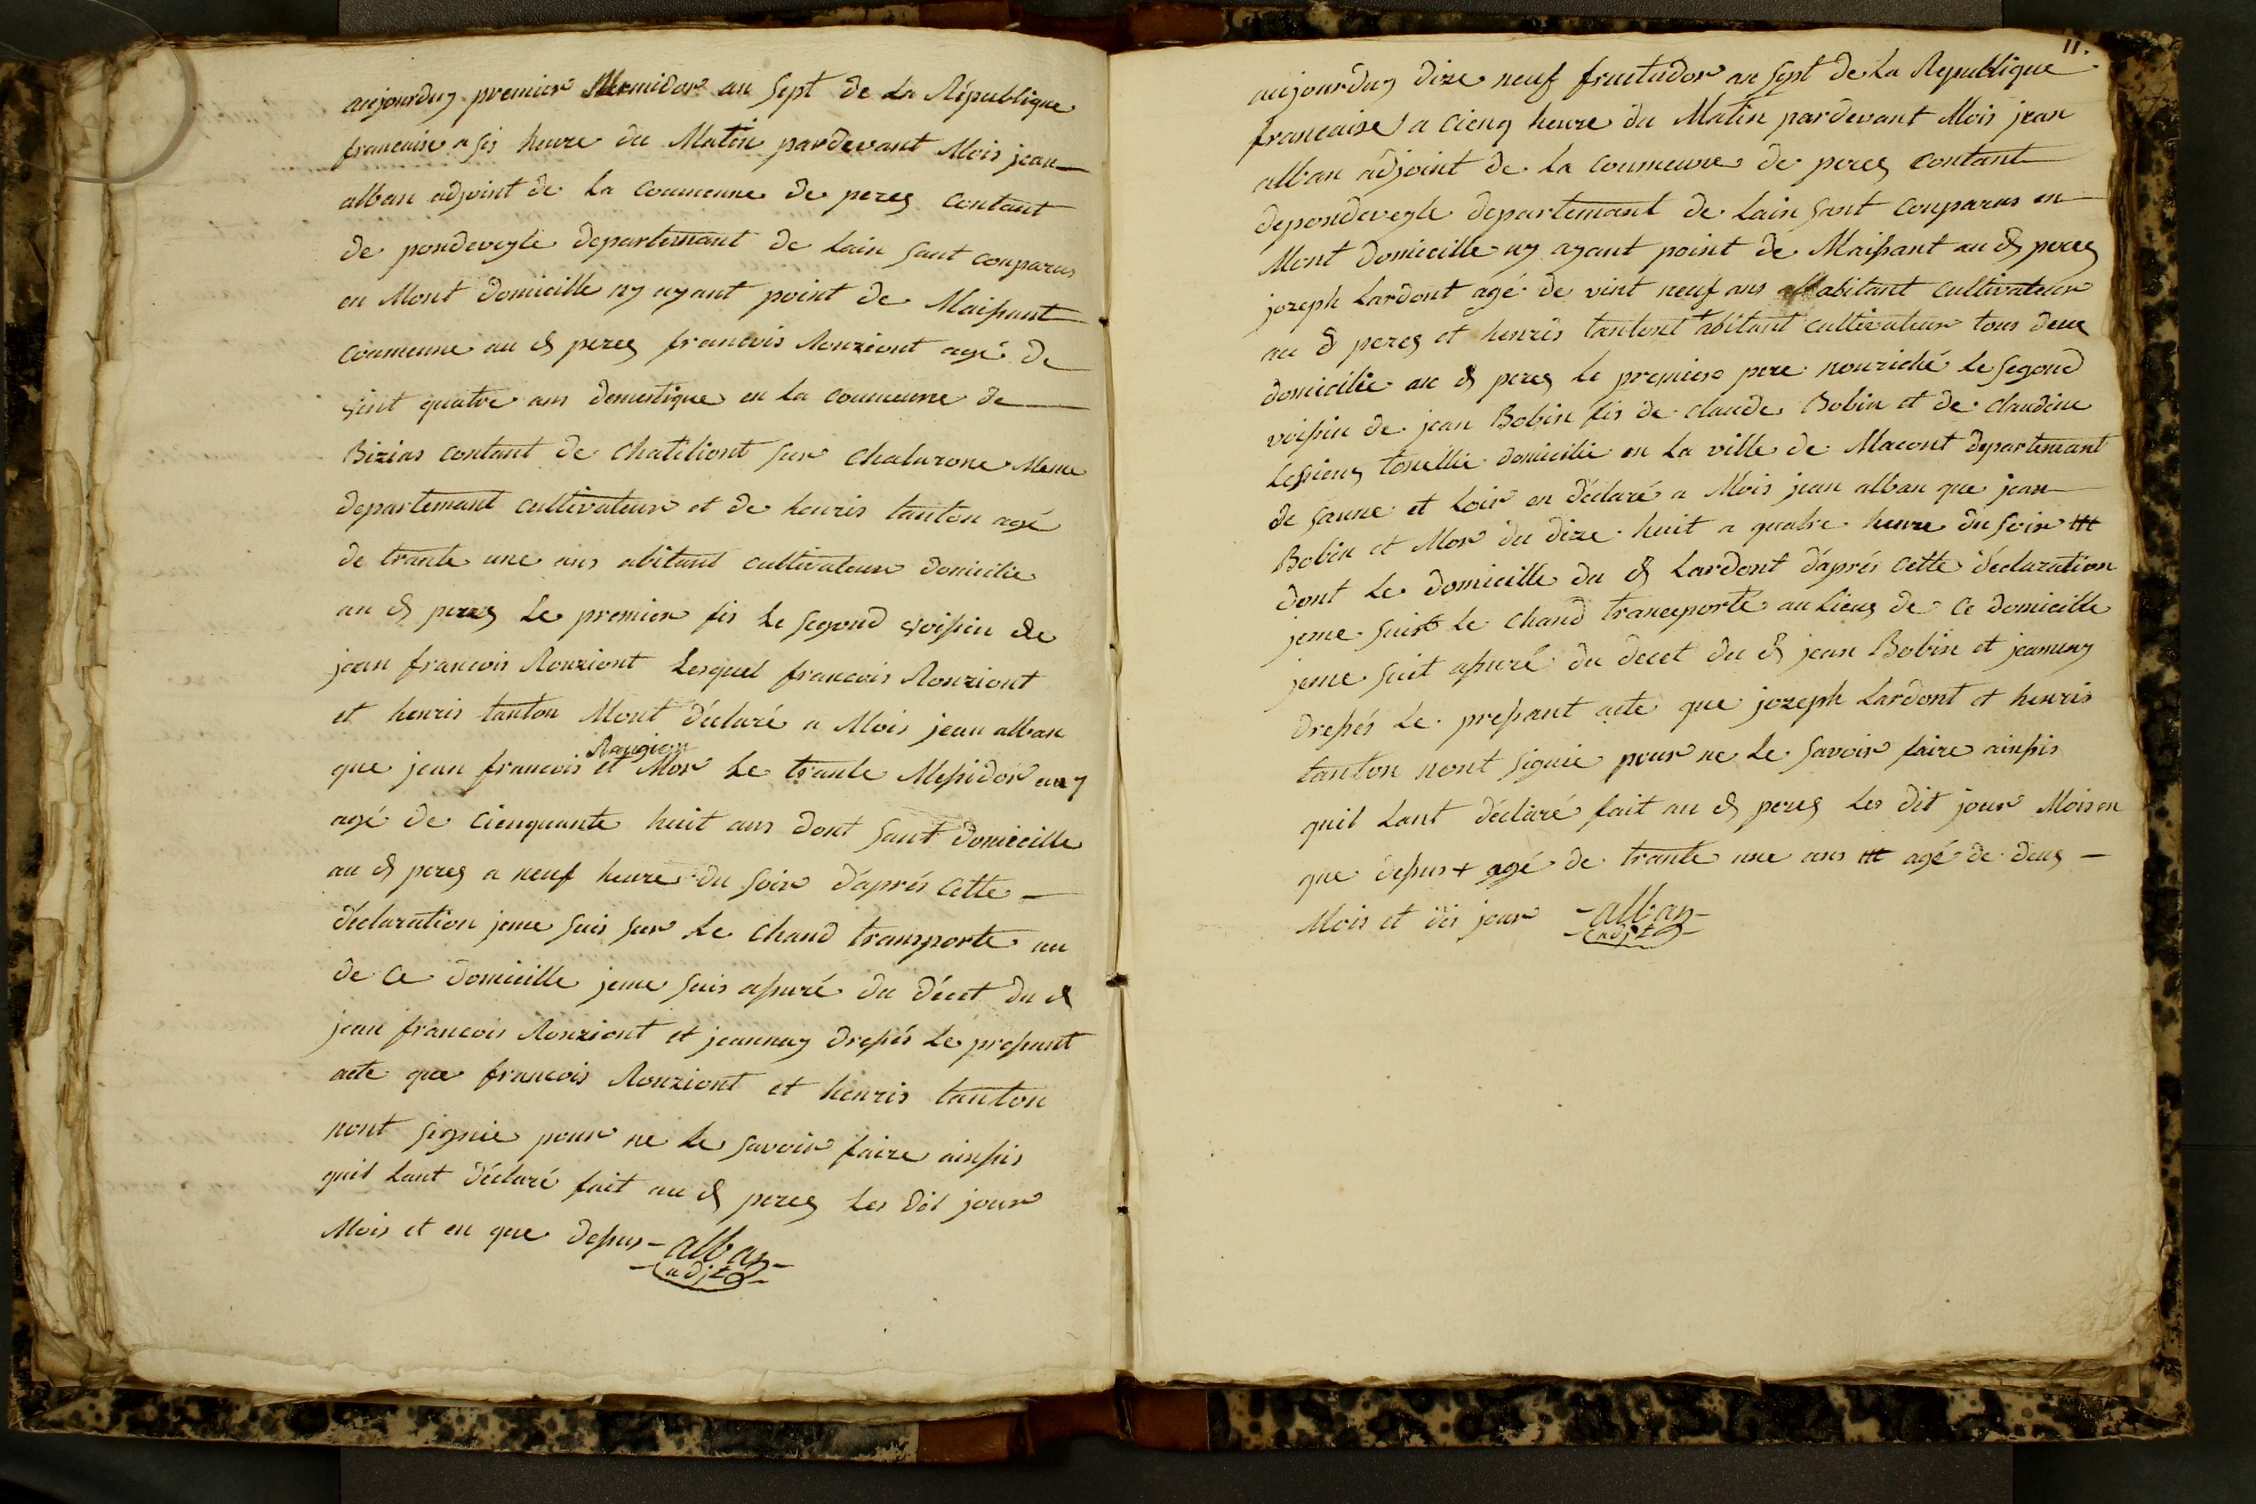 aujourduy premier Mermidor an sept de La République
francaise a sis heure du Matin pardevant Mois jean
alban adjoint de La Coumeune de perez Contant
de pondeveyle departemant de Lain sont conparus
en Mont domicille ny ayant point de Maissant
Coumeune au d perez francois Ronziont agé de
vint quatre ans domestique en La Coumeune de
Bizias Contant de Chatiliont sur Chalarone Meme
departemant cultivateur et de henris tanton agé
de trante une ans abitant cultivateur domicilie
au d perez Le premier fis Le segond voissin de
jean francois Ronziont Lesquel francois Ronziont
et henris tanton Mont déclaré a Mois jean alban
Rongion
que jean francois et Mor Le trante Messidor an 7
agé de Cienquante huit ans dont sont domicille
au d perez a neuf heure du soir d'aprés Cette
déclaration jeme suis sur Le Chand transporte au
de Ce domicille jeme suis assuré du décet du d
jean francois Ronziont et jeannay dressés Le pressant
acte que francois Ronziont et henris tanton
nont signie pour ne Le savoir faire ainssis
quil Lont déclaré fait au d perez Les dit jour
Mois et en que dessus alban
adjt
11.
aujourduy dize neuf fructudor an sept de La Republique
francaise a Cienq heure du Matin pardevant Mois jean
alban adjoint de La Coumeune de perez Contant
depondeveyle departemant de Lain sont conparus en
Mont domicille ny ayant point de Maissant au d perez
jozeph Lardont agé de vint neuf ans abitant Cultivateur
au d perez et henris tantont abitant cultivateur tous deux
domicilie au d perez Le premiere pere nouriché Le segond
voissin de jean Bobin fis de claude Bobin et de Claudine
Lessieuz tonellie domicilie en La ville de Macont departemant
de saune et Loir en déclaré a Mois jean alban que jean
Bobin et Mor du dize huit a quatre heure du soir ttt
dont Le domicille du d Lardont d'aprés Cette déclaration
jeme suist Le Chand tranceporté au Lieuz de Ce domicille
jeme suit assuré du decet du d jean Bobin et jeannay
dressés Le pressant acte que jozeph Lardont et henris
tanton nont signie pour ne Le savoir faire ainssis
quil Lont déclaré fait au d perez Les dit jour Mois en
que dessus + agé de trante une ans ttt agé de deuz
Mois et dis jour alban
adjt